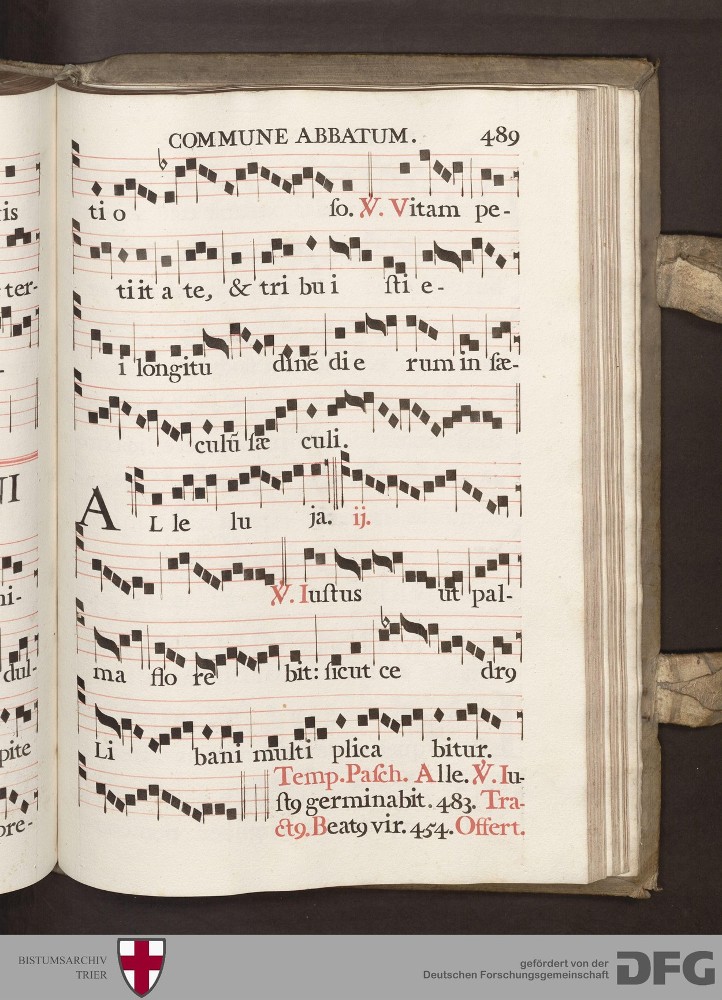 COMMUNE ABBATUM. 489
ti o ſo. ℣. Vitam pe-
tiit a te, & tri bu i ſti e-
i longitu dinē di e rum in ſæ-
culū ſæ culi.
A L le lu ja. ij.
℣. Iuſtus ut pal-
ma flo re bit: ſicut ce drꝯ
Li bani multi plica bitur.
Temp. Paſch. Alle. ℣. Iu-
ſtꝯ germinabit. 483. Tra-
ctꝯ. Beatꝯ vir. 454. Offert.
tis
ter-
-
NI
ni-
dul-
pite
pre-
BISTUMSARCHIV
TRIER
gefördert von der
Deutschen Forschungsgemeinschaft
DFG